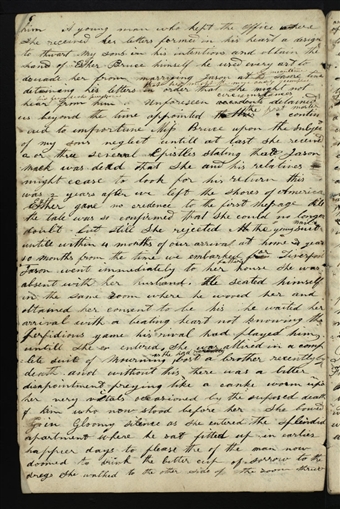 him A young man who kept the office where
she received her letters formed in his heart a design
to thwart my sons in his intentions and obtain the
hand of Ether Bruce himself he used every art to
disuade her from marrying Jason at
detaining his letters in order that she might not
hear from him Unforeseen accidents detained
us beyond the time appointed
to importune Miss Bruce upon the subject
of my sons neglect untill at last she receive
a or three several Epistles stating that Jason
was dead that she and his relatives
might cease to look for his return this
was 2 years after we left the shores of America
Ether gave no credence to the first message till
the tale was so confirmed that she could no longer
doubt but still she rejected the young suit
untill within 4 months of our arrival at home 2 years
months from the time we embarked for Liverpool
Jason went immediately to her house she was
absent with her husband. He seated himself
in the same room where he wooed her and
obtained her consent to be his he waited her
arrival with a beating heart not knowing the
perfidious game his rival had played him
untill she entered, she was attired in a com
plete suit of Mourning lost a brother recently
death and without this there was a bitter
disapointment preying like a canker worm upon
her very vitals occasioned by the suposed death
of him who now stood before her She bowed
in Gloomy silence as she entered the splendid
apartment where he sat fitted up in earlier
happier days to please the of the man now
doomed to drink the bitter cup of sorrow to the
dregs She walked to the other side of the room threw